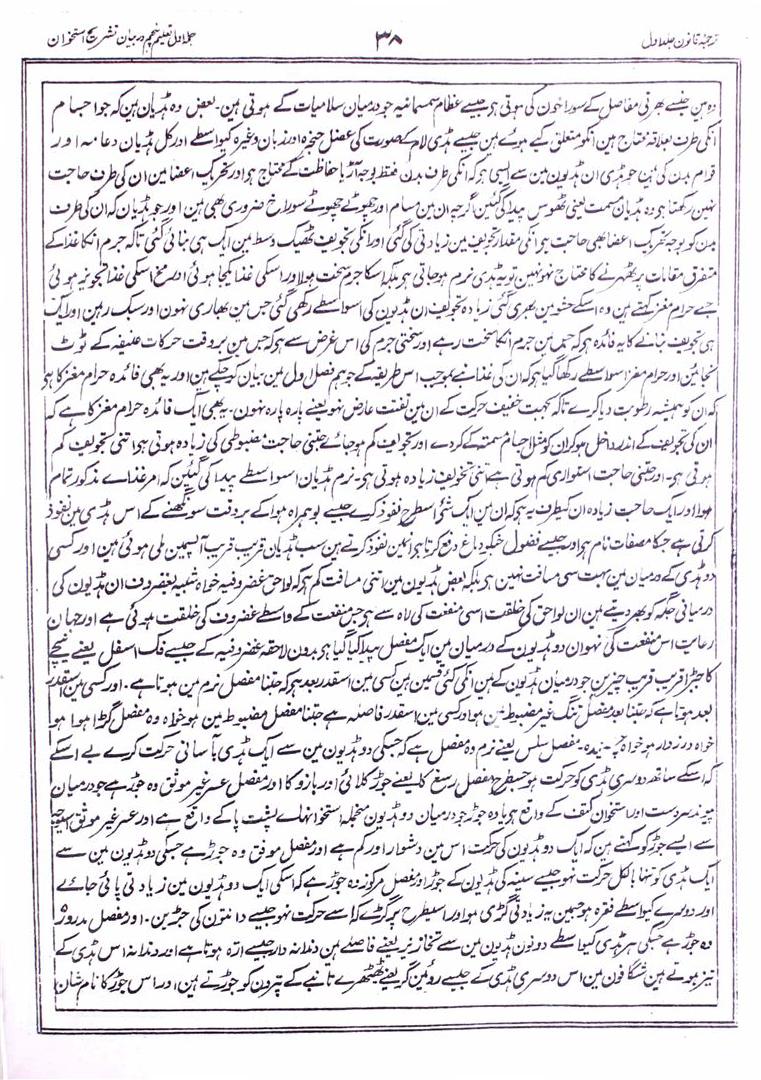 ترجمۂ قانون جلد اول ۳۸ جملہ اول تعلیم پنجم در بیان تشریح استخوان
وہ ہین جنسے بھرتی مفاصل کے سوراخون کی ہوتی ہی جیسے عظام سمسمانیہ جو درمیان سلامیات کے ہوتی ہین۔ بعض وہ ہڈیان ہین کہ جو اجسام
انکی طرف بعلاقہ محتاج ہین انکو متعلق کیے ہوئے ہین جیسے ہڈی لام کے صورت کی عضل حنجرہ اور زبان وغیرہ کیواسطے اور کل ہڈیان دعامہ اور
قوام بدن کی ہین جو ہڈی ان ہڈیون مین سے ایسی ہو کہ انکی طرف بدن فقط بوجہ آڑ یا حفاظت کے محتاج ہو اور تحریک اعضا مین ان کی طرف حاجت
نہین رکھتا ہی وہ ہڈیان مصمت یعنی ٹھوس پیدا کی گئین اگرچہ ان مین مسام اور چھوٹے چھوٹے سوراخ ضروری بھی ہین اور جو ہڈیان کہ ان کی طرف
بدن کو بوجہ تحریک اعضا بھی حاجت ہی انکی مقدار تجویف مین زیادتی کی گئی اور انکی تجویف ٹھیک وسط مین ایک ہی بنائی گئی تاکہ جرم انکا غذا کے
متفرق مقامات پر ٹھہرنے کا محتاج نہو نہین تو یہ ہڈی نرم ہو جاتی ہی بلکہ اسکا جرم سخت ہوا اور اسکی غذا یکجا ہوئی اور مخ اسکی غذا تجویز ہوئی
جسے حرام مغز کہتے ہین وہ اسکے حشو مین بھری گئی زیادہ تجویف ان ہڈیون کی اسواسطے رکھی گئی جس مین بھاری نہون اور سبک رہین اور ایک
ہی تجویف بنانے کا یہ فائدہ ہو کہ جسمین جرم انکا سخت رہے اور سختی جرم کی اس غرض سے ہو کہ جس مین بروقت حرکات عنیفہ کے ٹوٹ
نجائین اور حرام مغز اسواسطے رکھا گیا ہو کہ ان کی غذا بنے بموجب اس طریقہ کے جو ہم فصل اول مین بیان کر چکے ہین اور یہ بھی فائدہ حرام مغز کا ہی
کہ ان کو ہمیشہ رطوبت دیا کرے تاکہ بجہت خفیف حرکت کے ان مین تفتت عارض نہو یعنے پارہ پارہ نہون۔ یہ بھی ایک فائدہ حرام مغز کا ہے کہ
ان کی تجویف کے اندر داخل ہو کر ان کو مثل اجسام مصمتہ کے کردے اور تجویف کم ہو جائے جتنی حاجت مضبوطی کی زیادہ ہوتی ہی اتنی تجویف کم
ہوتی ہی۔ اور جتنی حاجت استواری کم ہوتی ہے اتنی تجویف زیادہ ہوتی ہی۔ نرم ہڈیان اسواسطے پیدا کی گئین کہ امر غذاے مذکور تمام
ہوا اور ایک حاجت زیادہ ان کیطرف یہ ہو کہ ان مین ایک شئ اسطرح نفوذ کرے جیسے بو ہمراہ ہوا کے بروقت سونگھنے کے اس ہڈی مین نفوذ
کرتی ہے جسکا مصفات نام ہو اور جیسے فضول جنکو دماغ دفع کرتا ہو انمین نفوذ کرتے ہین سب ہڈیان قریب قریب آپسمین ملی ہوئی ہین اور کسی
دو ہڈی کے درمیان مین بہت سی مسافت نہین ہی بلکہ بعض ہڈیون مین اتنی مسافت کم ہو کہ لواحق غضروفیہ خواہ شبیہ بغضروف ان ہڈیون کی
درمیانی جگہ کو بھر دیتے ہین ان لواحق کی خلقت اسی منفعت کی راہ سے ہی جس منفعت کے واسطے غضروف کی خلقت ہوئی ہے اور جہان
رعایت اس منفعت کی نہو ان دو ہڈیون کے درمیان مین ایک مفصل پیدا کیا گیا ہی بدون لاحقہ غضروفیہ کے جیسے فک اسفل یعنے نیچے
کا جبڑا قریب قریب چیزین جو درمیان ہڈیون کے ہین انکی کئی قسمین ہین کسی مین اسقدر بعد ہو کہ جتنا مفصل نرم مین ہوتا ہے۔ اور کسی مین اسقدر
بعد ہوتا ہے کہ جتنا بعد مفصل تنگ غیر مضبوط مین ہو اور کسی مین اسقدر فاصلہ ہے جتنا مفصل مضبوط مین ہو خواہ وہ مفصل گڑا ہوا ہو
خواہ درزدار ہو خواہ چسپیدہ۔ مفصل سلس یعنے نرم وہ مفصل ہے کہ جسکی دو ہڈیون مین سے ایک ہڈی بآسانی حرکت کرے بے اسکے
کہ اسکے ساتھ دوسری ہڈی کو حرکت ہو جسطرح مفصل رسغ کا یعنے جوڑ کلائی اور بازو کا اور مفصل عسر غیر موثق وہ جوڑ ہے جو درمیان
پیوند سر دست اور استخوان کتف کے واقع ہو یا وہ جوڑ جو درمیان دو ہڈیون منجملہ استخوانہاے پشت پا کے واقع ہے اور عسر غیر موثق
سے ایسے جوڑ کو کہتے ہین کہ ایک دو ہڈیون کی حرکت اس مین دشوار اور کم ہے اور مفصل موثق وہ جوڑ ہے جسکی دو ہڈیون مین سے
ایک ہڈی کو تنہا بالکل حرکت نہو جیسے سینہ کی ہڈیون کے جوڑ اور مفصل مرکوز وہ جوڑ ہے کہ اسکی ایک دو ہڈیون مین زیادتی پائی جائے
اور دوسرے کیواسطے فقرہ ہو جسمین یہ زیادتی گڑی ہو اور اسیطرح پر گڑے کہ اسے حرکت نہو جیسے دانتون کی جڑین۔ اور مفصل مدروز
وہ جوڑ ہے جسکی ہر ہڈی کیواسطے دونون ہڈیون مین سے تخازیز یعنے فاصلے ہین دندانہ دار جیسے ارہ ہوتا ہے اور دندانہ اس ہڈی کے
تیز ہوتے ہین شگافون مین اس دوسری ہڈی کے جیسے روئین گر یعنے ٹھٹھیرے تانبے کے پترون کو جوڑتے ہین اور اس جوڑ کا نام شان